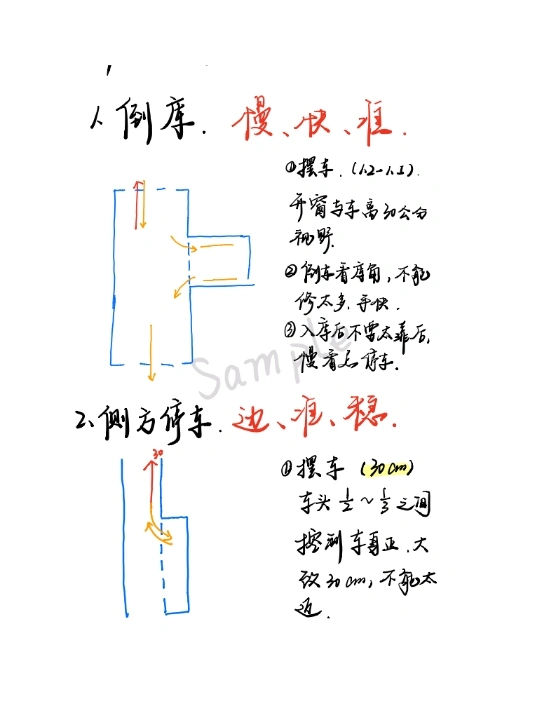 1. 倒库. 慢、快、准.
①摆车. (1.2-1.3).
开窗与车高30公分
视野.
②倒车看库角, 不能
修太多, 手快.
③入库后不要太靠后,
慢看点 停车.
Sample
2. 侧方停车. 边、准、稳.
30
①摆车 (30cm)
车头 1/2 ~ 1/3 之间
控制车身正, 大
致30cm, 不能太
近.